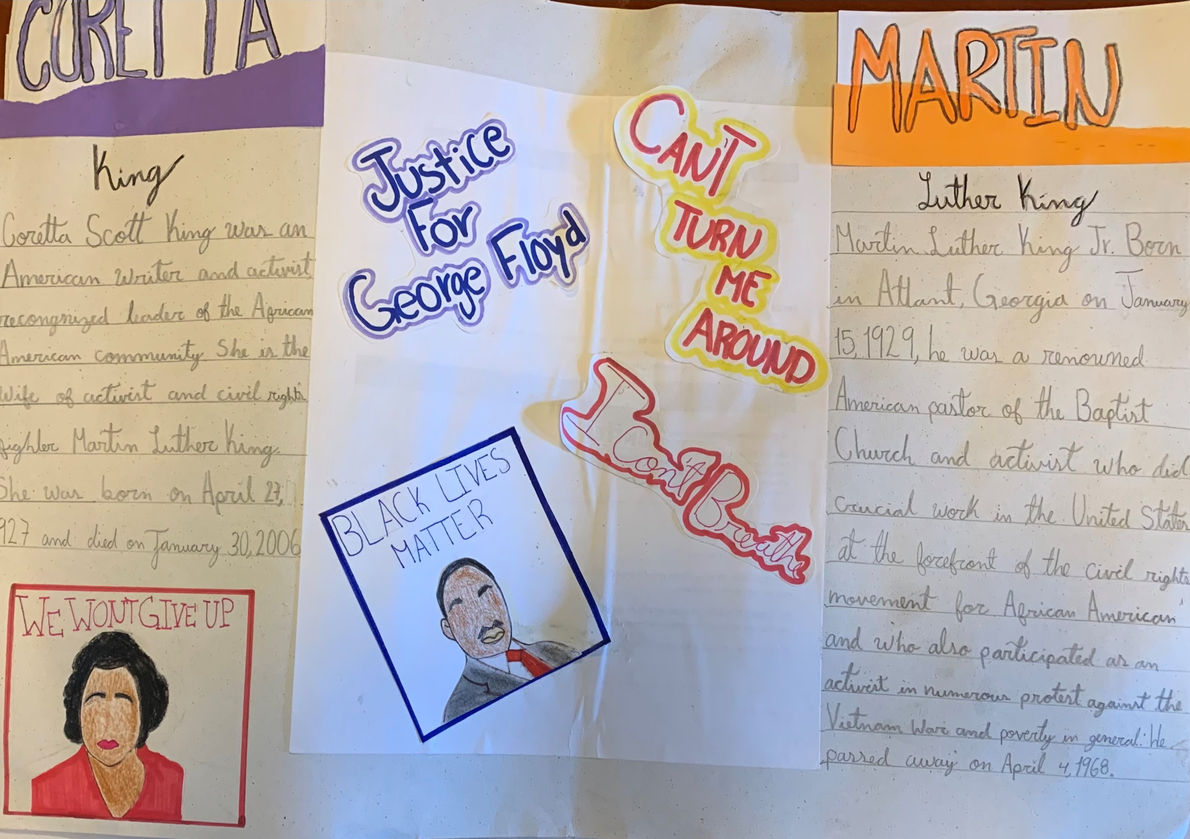 CORETTA
King
Coretta Scott King was an
American Writer and activist
recongnized leader of the African
American community She is the
Wife of activist and civil rights
fighter Martin Luther King.
She was born on April 27,
927 and died on January 30, 2006
WE WONT GIVE UP
Justice
For
George Floyd
CAN'T
TURN
ME
AROUND
I Cant Breathe
BLACK LIVES
MATTER
MARTIN
Luther King
Martin Luther King Jr. Born
in Atlant, Georgia on January
15, 1929, he was a renowned
American pastor of the Baptist
Church and activist who did
crucial work in the United States
at the forefront of the civil rights
movement for African American'
and who also participated as an
activist in numerous protest against the
Vietnam Ware and poverty in general. He
passed away on April 4, 1968.